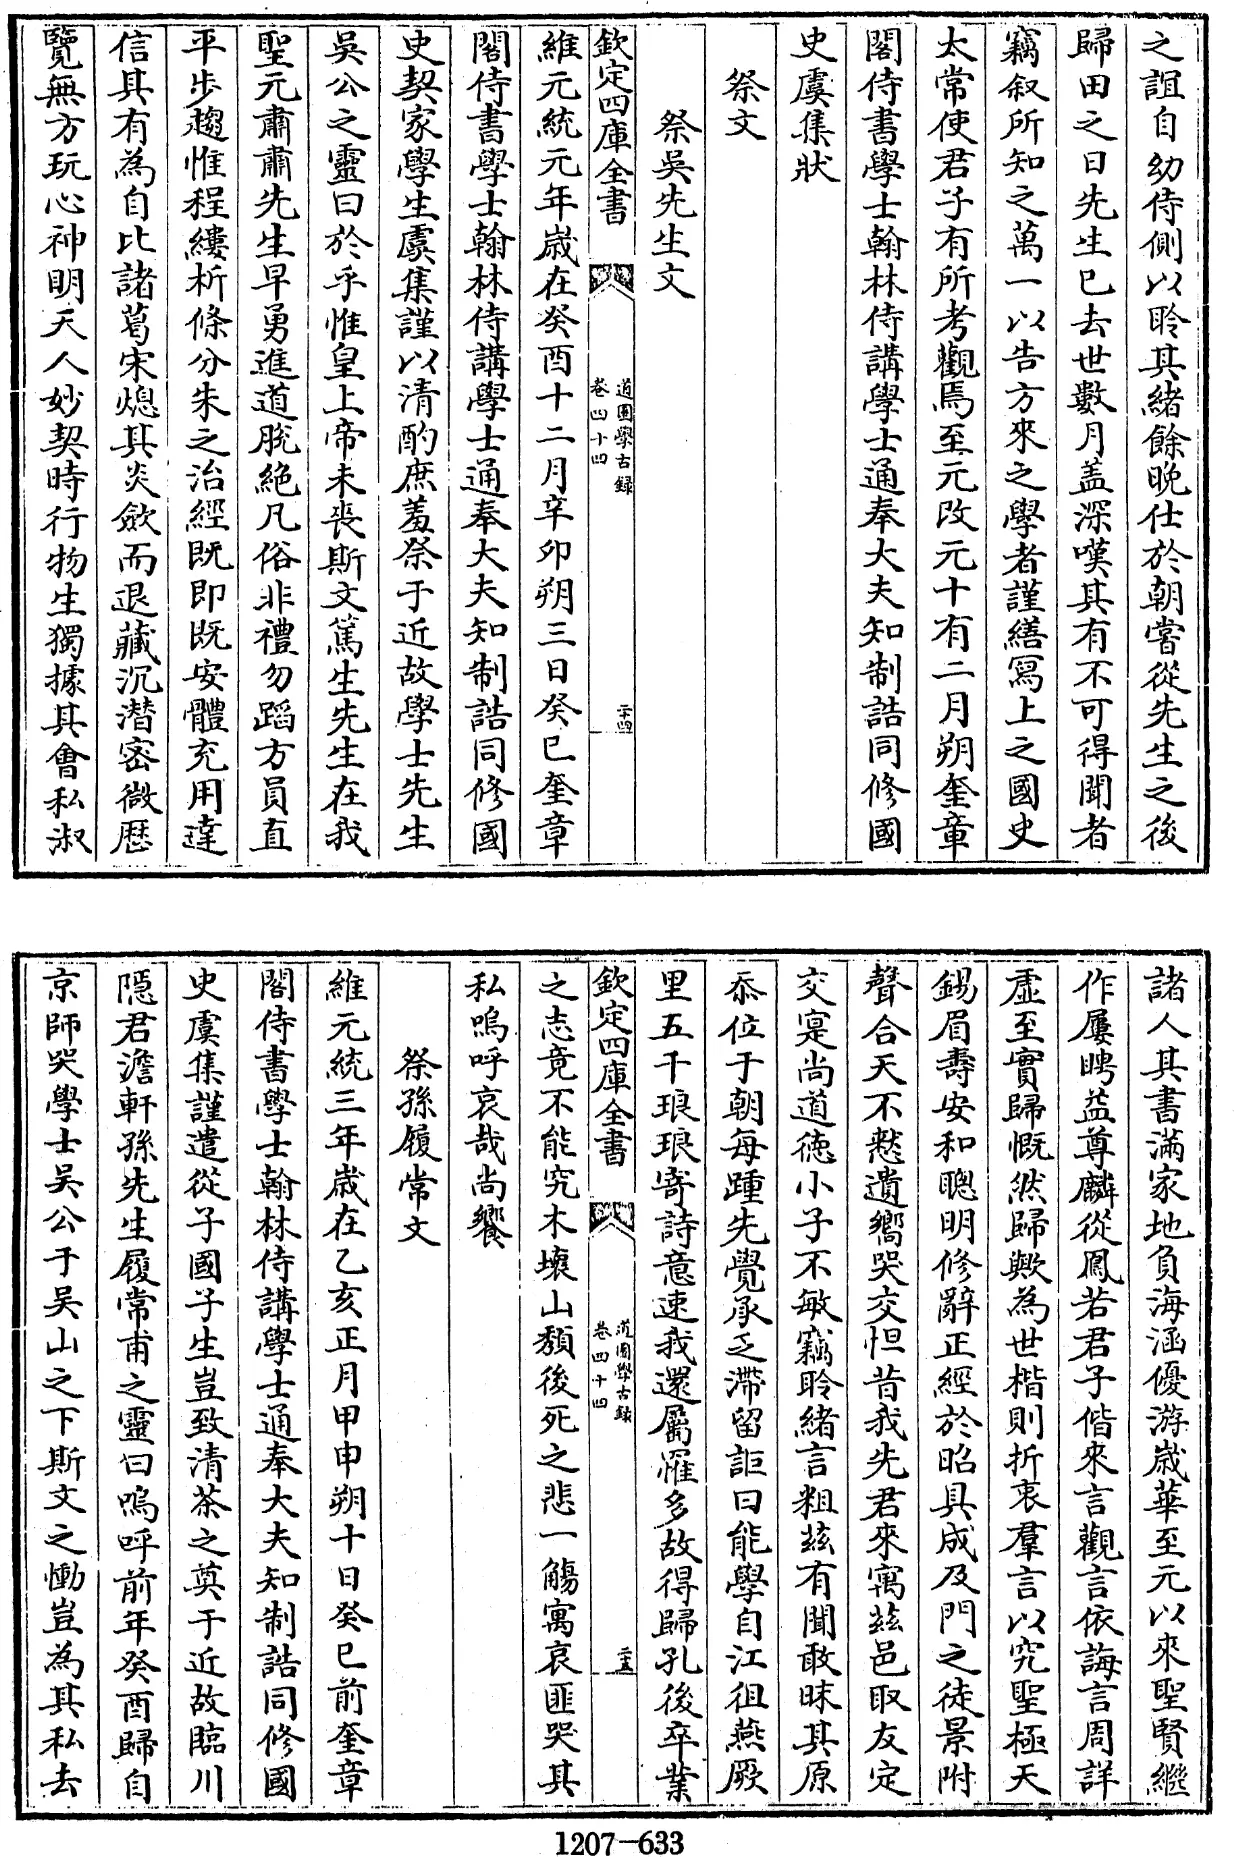 之誼自幼侍側以聆其緒餘晚仕於朝嘗從先生之後
歸田之日先生已去世數月盖深嘆其有不可得聞者
竊叙所知之萬一以告方來之學者謹繕寫上之國史
太常使君子有所考觀焉至元改元十有二月朔奎章
閣侍書學士翰林侍講學士通奉大夫知制誥同修國
史虞集狀
祭文
祭吳先生文
欽定四庫全書
道園學古録
卷四十四
二十四
維元統元年歲在癸酉十二月辛卯朔三日癸巳奎章
閣侍書學士翰林侍講學士通奉大夫知制誥同修國
史契家學生虞集謹以清酌庶羞祭于近故學士先生
吳公之靈曰於乎惟皇上帝未喪斯文篤生先生在我
聖元肅肅先生早勇進道脫絶凡俗非禮勿蹈方員直
平步趨惟程縷析條分朱之治經既即既安體充用達
信其有為自比諸葛宋熄其炎斂而退藏沉潜密微歴
覽無方玩心神明天人妙契時行物生獨據其會私淑
諸人其書滿家地負海涵優游歲華至元以來聖賢繼
作屢聘益尊麟從鳳若君子偕來言觀言依誨言周詳
虛至實歸慨然歸歟為世楷則折衷羣言以究聖極天
錫眉壽安和聰明修辭正經於昭具成及門之徒景附
聲合天不憗遺嚮哭交怛昔我先君來寓兹邑取友定
交寔尚道德小子不敏竊聆緒言粗兹有聞敢昧其原
忝位于朝每踵先覺承乏滯留詎曰能學自江徂燕厥
里五千琅琅寄詩意速我還屬罹多故得歸孔後卒業
欽定四庫全書
道園學古録
卷四十四
二十五
之志竟不能究木壞山頹後死之悲一觴寓哀匪哭其
私嗚呼哀哉尚饗
祭孫履常文
維元統三年歲在乙亥正月甲申朔十日癸巳前奎章
閣侍書學士翰林侍講學士通奉大夫知制誥同修國
史虞集謹遣從子國子生豈致清茶之奠于近故臨川
隱君澹軒孫先生履常甫之靈曰嗚呼前年癸酉歸自
京師哭學士吳公于吴山之下斯文之慟豈為其私去
1207-633